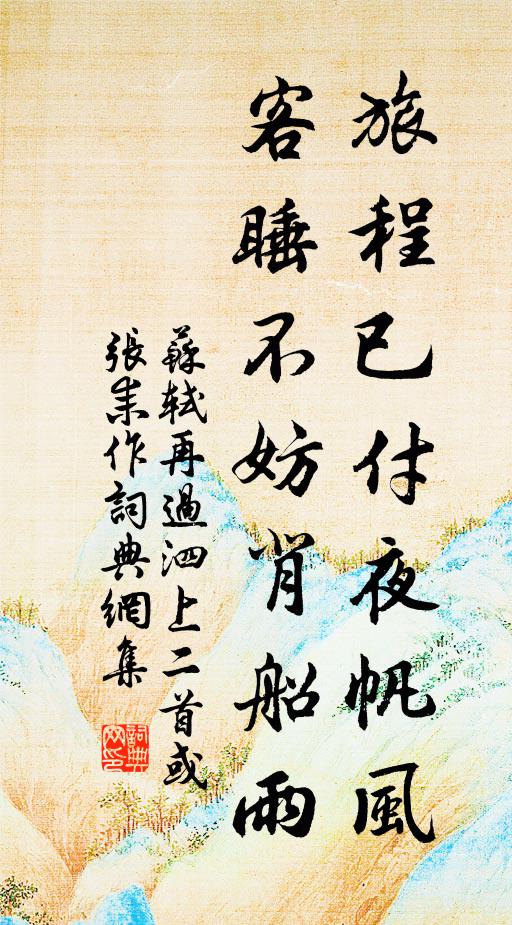 旅程已付夜帆風
客睡不妨背船雨
蘇軾再過泗上二首或
張耒作詞典網集
詞典
网印